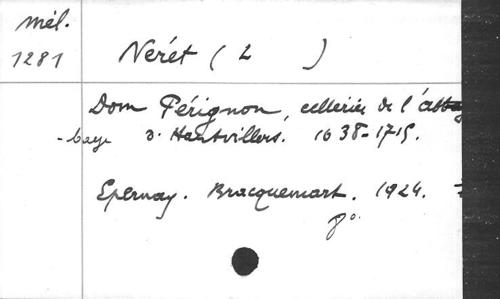 mél.
1281
Nerét ( L )
Dom Pérignon, cellerier de l'abba
-baye d'Hautvillers. 1638-1715.
Epernay. Bracquemart. 1924.
8°